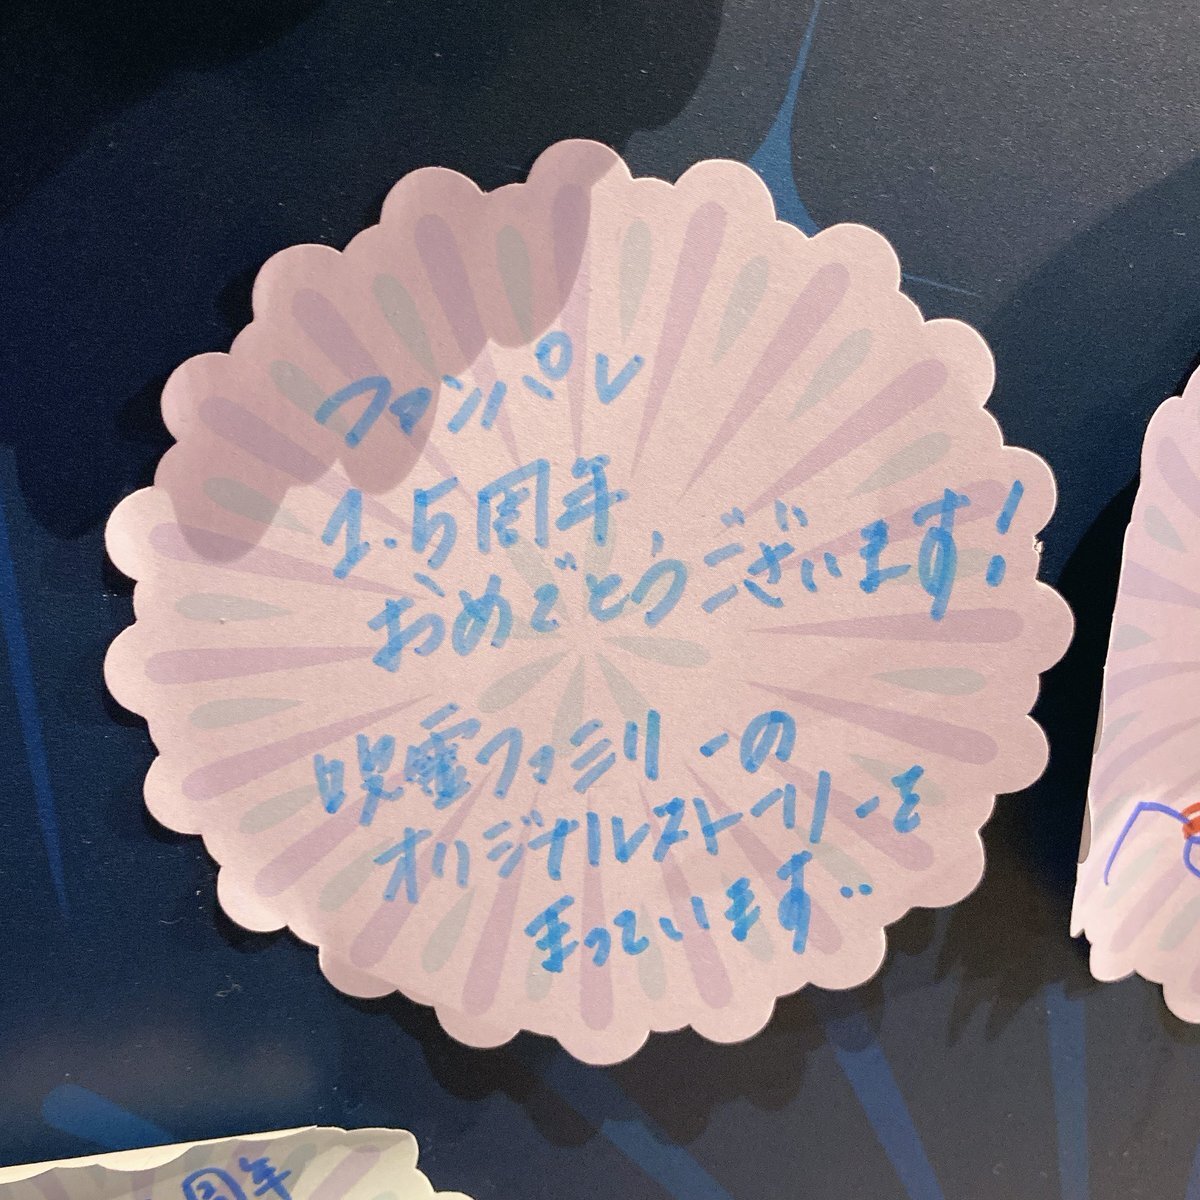 ファンパレ
1.5周年
おめでとうございます!
呪霊ファミリーの
オリジナルストーリーを
まっています..
周年